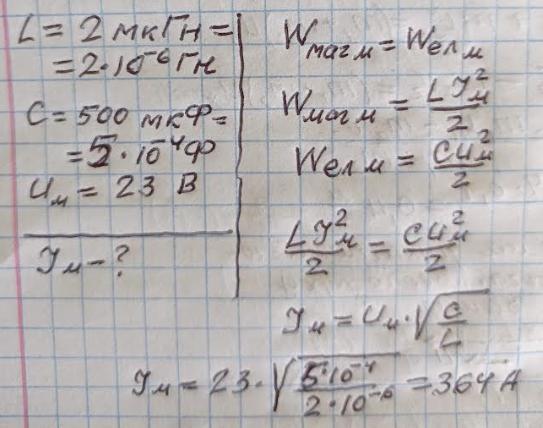 L = 2 мкГн =
= 2·10⁻⁶ Гн
C = 500 мкФ =
= 5·10⁻⁴ Ф
Uм = 23 В
Iм - ?
Wмагм = Wелм
Wмагм = LIм²/2
Wелм = CUм²/2
LIм²/2 = CUм²/2
Iм = Uм·√(C/L)
Iм = 23·√(5·10⁻⁴/2·10⁻⁶) = 364 А